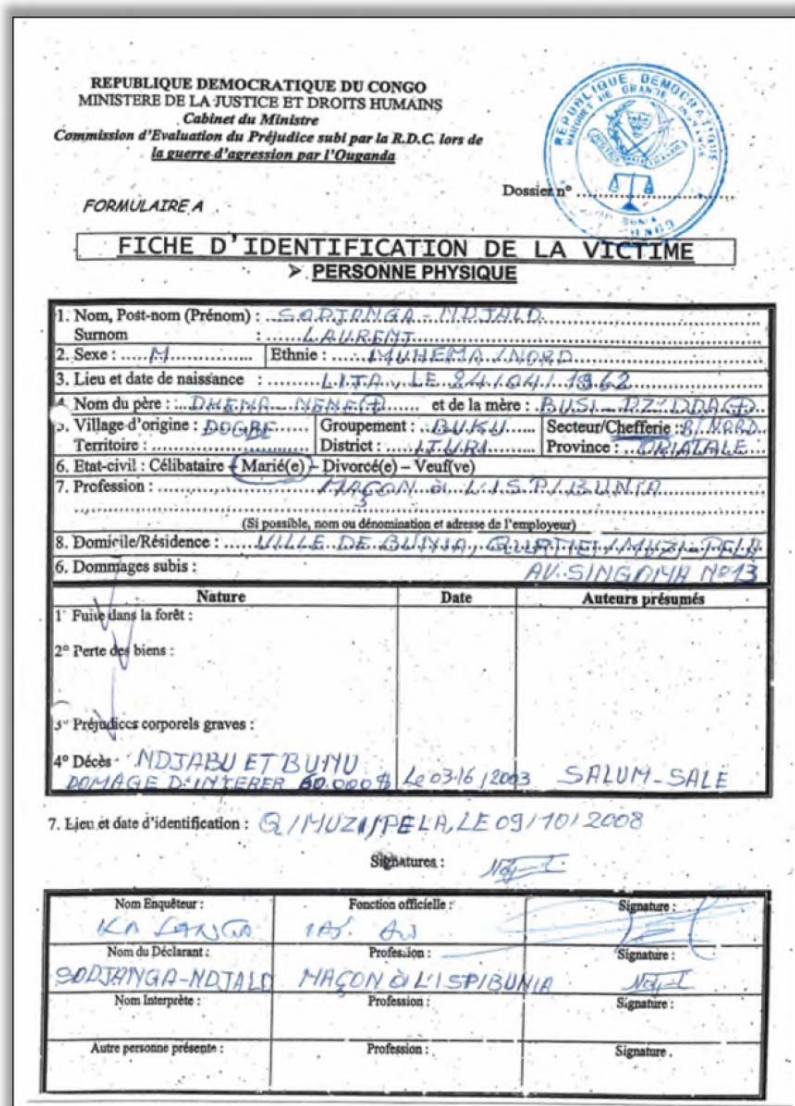 REPUBLIQUE DEMOCRATIQUE DU CONGO
MINISTERE DE LA JUSTICE ET DROITS HUMAINS
Cabinet du Ministre
Commission d'Evaluation du Préjudice subi par la R.D.C. lors de
la guerre d'agression par l'Ouganda
REPUBLIQUE DEMOCRATIQUE
Dossier n° ..........
FORMULAIRE A
FICHE D'IDENTIFICATION DE LA VICTIME
➢ PERSONNE PHYSIQUE
1. Nom, Post-nom (Prénom) : SODJANGA - NDJALO
Surnom : LAURENT
2. Sexe : M Ethnie : MUHEMA / NORD
3. Lieu et date de naissance : LITA, LE 24/04/1962
4. Nom du père : DHEMA NENE (+) et de la mère : BUSI - DZ' DDA (+)
5. Village d'origine : DOGBE Groupement : BUKU Secteur/Chefferie : B/NORD
Territoire : .......... District : ITURI Province : ORIATALE
6. Etat-civil : Célibataire – Marié(e) – Divorcé(e) – Veuf(ve)
7. Profession : MAÇON à L'ISP/BUNIA
(Si possible, nom ou dénomination et adresse de l'employeur)
8. Domicile/Résidence : VILLE DE BUNIA, QURTIEI/MUZI-PELA
6. Dommages subis : AV. SINGOMA N°13
Nature Date Auteurs présumés
1° Fuite dans la forêt :
2° Perte des biens :
3° Préjudices corporels graves :
4° Décès NDJABU ET BUNU
DOMAGE D'INTERER 60.000 $ Le 03-16/2003 SALUM-SALE
7. Lieu et date d'identification : Q/MUZI/PELA, LE 09/10/2008
Signatures :
Nom Enquêteur : Fonction officielle : Signature :
KALANGA
Nom du Déclarant : Profession : Signature :
SODJANGA-NDJALO MAÇON à L'ISP/BUNIA
Nom Interprète : Profession : Signature :
Autre personne présente : Profession : Signature .